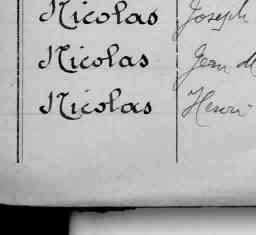 Nicolas Joseph
Nicolas Jean M
Nicolas Henri